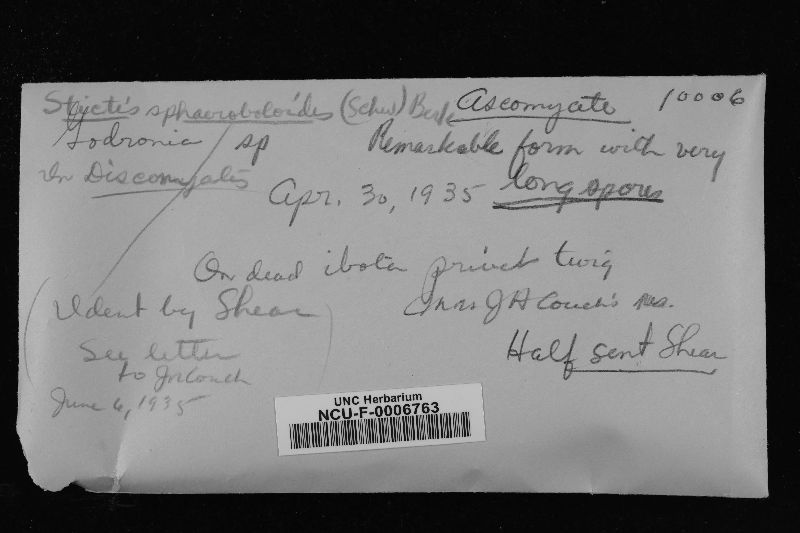 Stictis sphaeroboloides (Schw) Berk Ascomycete 10006
Godronia sp Remarkable form with very
In Discomycetes long spores
Apr. 30, 1935
On dead ibota privet twig
(Ident by Shear) Mrs J N Couch's res.
See letter Half sent Shear
to JNCouch
June 6, 1935
UNC Herbarium
NCU-F-0006763